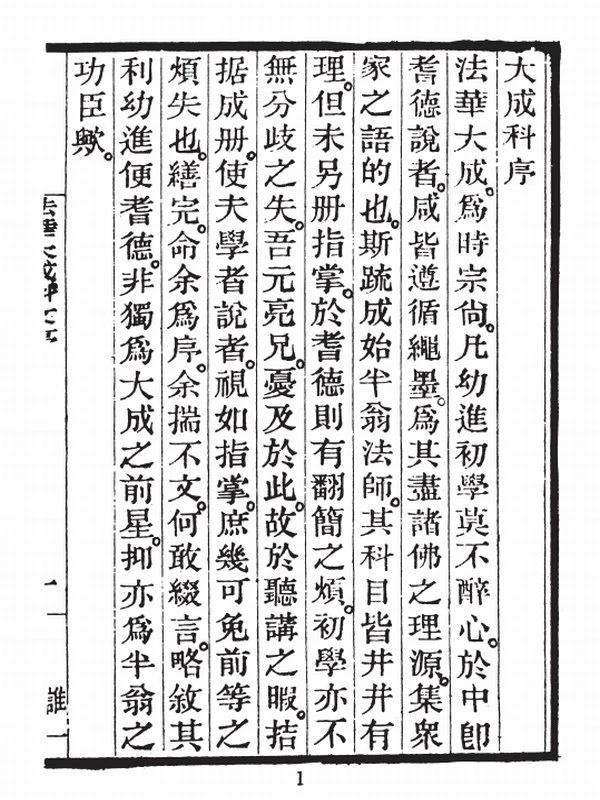 大成科序
法華大成。爲時宗尙。凡幼進初學莫不醉心。於中卽
耆德說者。咸皆遵循繩墨。爲其盡諸佛之理源。集衆
家之語的也。斯疏成始半翁法師。其科目皆井井有
理。但未另册指掌。於耆德則有翻簡之煩。初學亦不
無分歧之失。吾元亮兄。憂及於此。故於聽講之暇。拮
据成册。使夫學者說者。視如指掌。庶幾可免前等之
煩失也。繕完。命余爲序。余揣不文。何敢綴言。略敘其
利幼進便耆德。非獨爲大成之前星。抑亦爲半翁之
功臣歟。
一
1